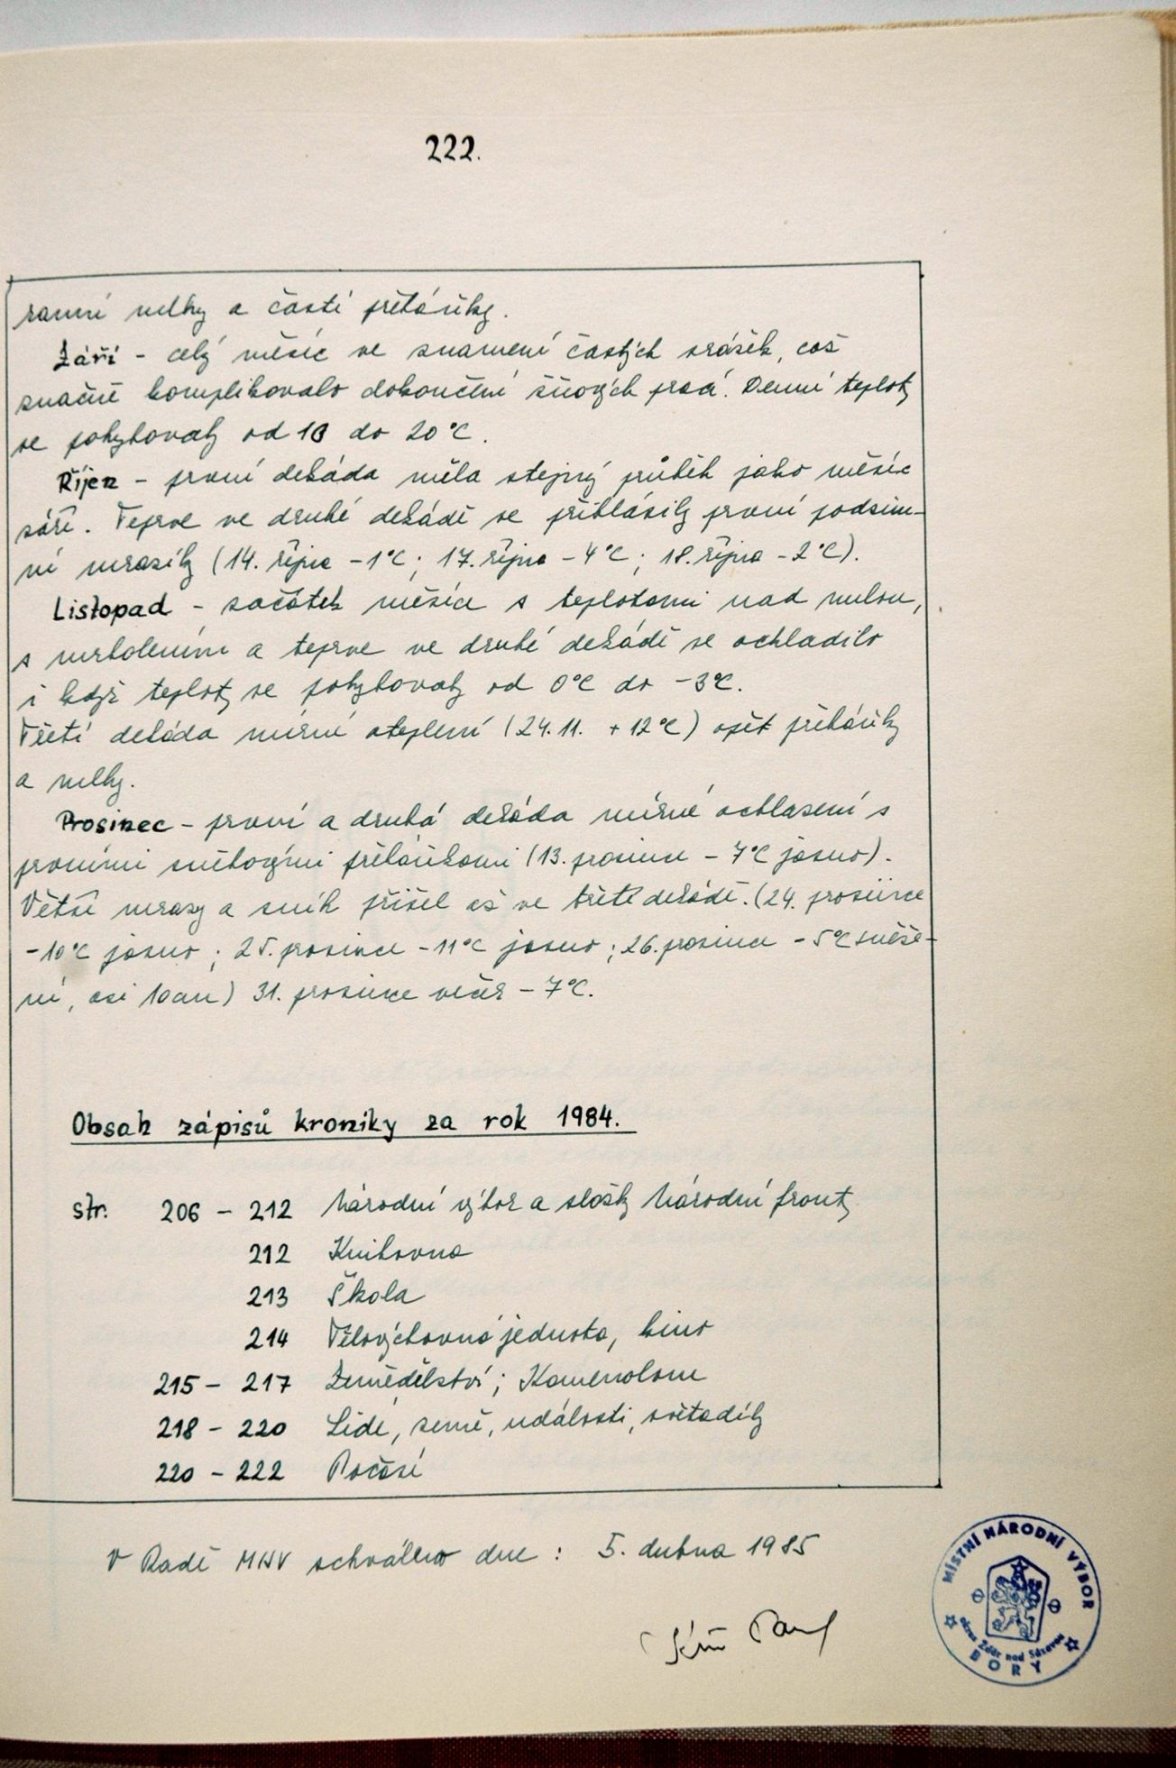 222.
ranní mlhy a časté přeháňky.
Září - celý měsíc ve znamení častých srážek, což
značně komplikovalo dokončení žňových prací. Denní teploty
se pohybovaly od 10 do 20°C.
Říjen - první dekáda měla stejný průběh jako měsíc
září. Teprve ve druhé dekádě se přihlásily první podzim-
ní mrazíky (14. října -1°C; 17. října -4°C; 18. října -2°C).
Listopad - začátek měsíce s teplotami nad nulou,
s mrholením a teprve ve druhé dekádě se ochladilo
i když teploty se pohybovaly od 0°C do -3°C.
Třetí dekáda mírné oteplení (24.11. +12°C) opět přeháňky
a mlhy.
Prosinec - první a druhá dekáda mírné ochlazení s
prvními sněhovými přeháňkami (13. prosince -7°C jasno).
Větší mrazy a sníh přišel až ve třetí dekádě. (24. prosince
-10°C jasno; 25. prosince -11°C jasno; 26. prosince -5°C sněže-
ní, asi 10 cm) 31. prosince večer -7°C.
Obsah zápisů kroniky za rok 1984.
str. 206 - 212 Národní výbor a složky Národní fronty
212 Knihovna
213 Škola
214 Tělovýchovná jednota, kino
215 - 217 Zemědělství; Kamenolom
218 - 220 Lidé, země, události, světadíly
220 - 222 Počasí
V Radě MNV schváleno dne: 5. dubna 1985
MÍSTNÍ NÁRODNÍ VÝBOR
okres Žďár nad Sázavou
BORY